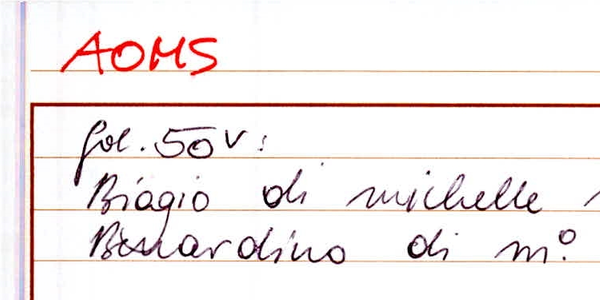 AOMS
fol. 50v:
Biagio di michelle
Bernardino di mº.